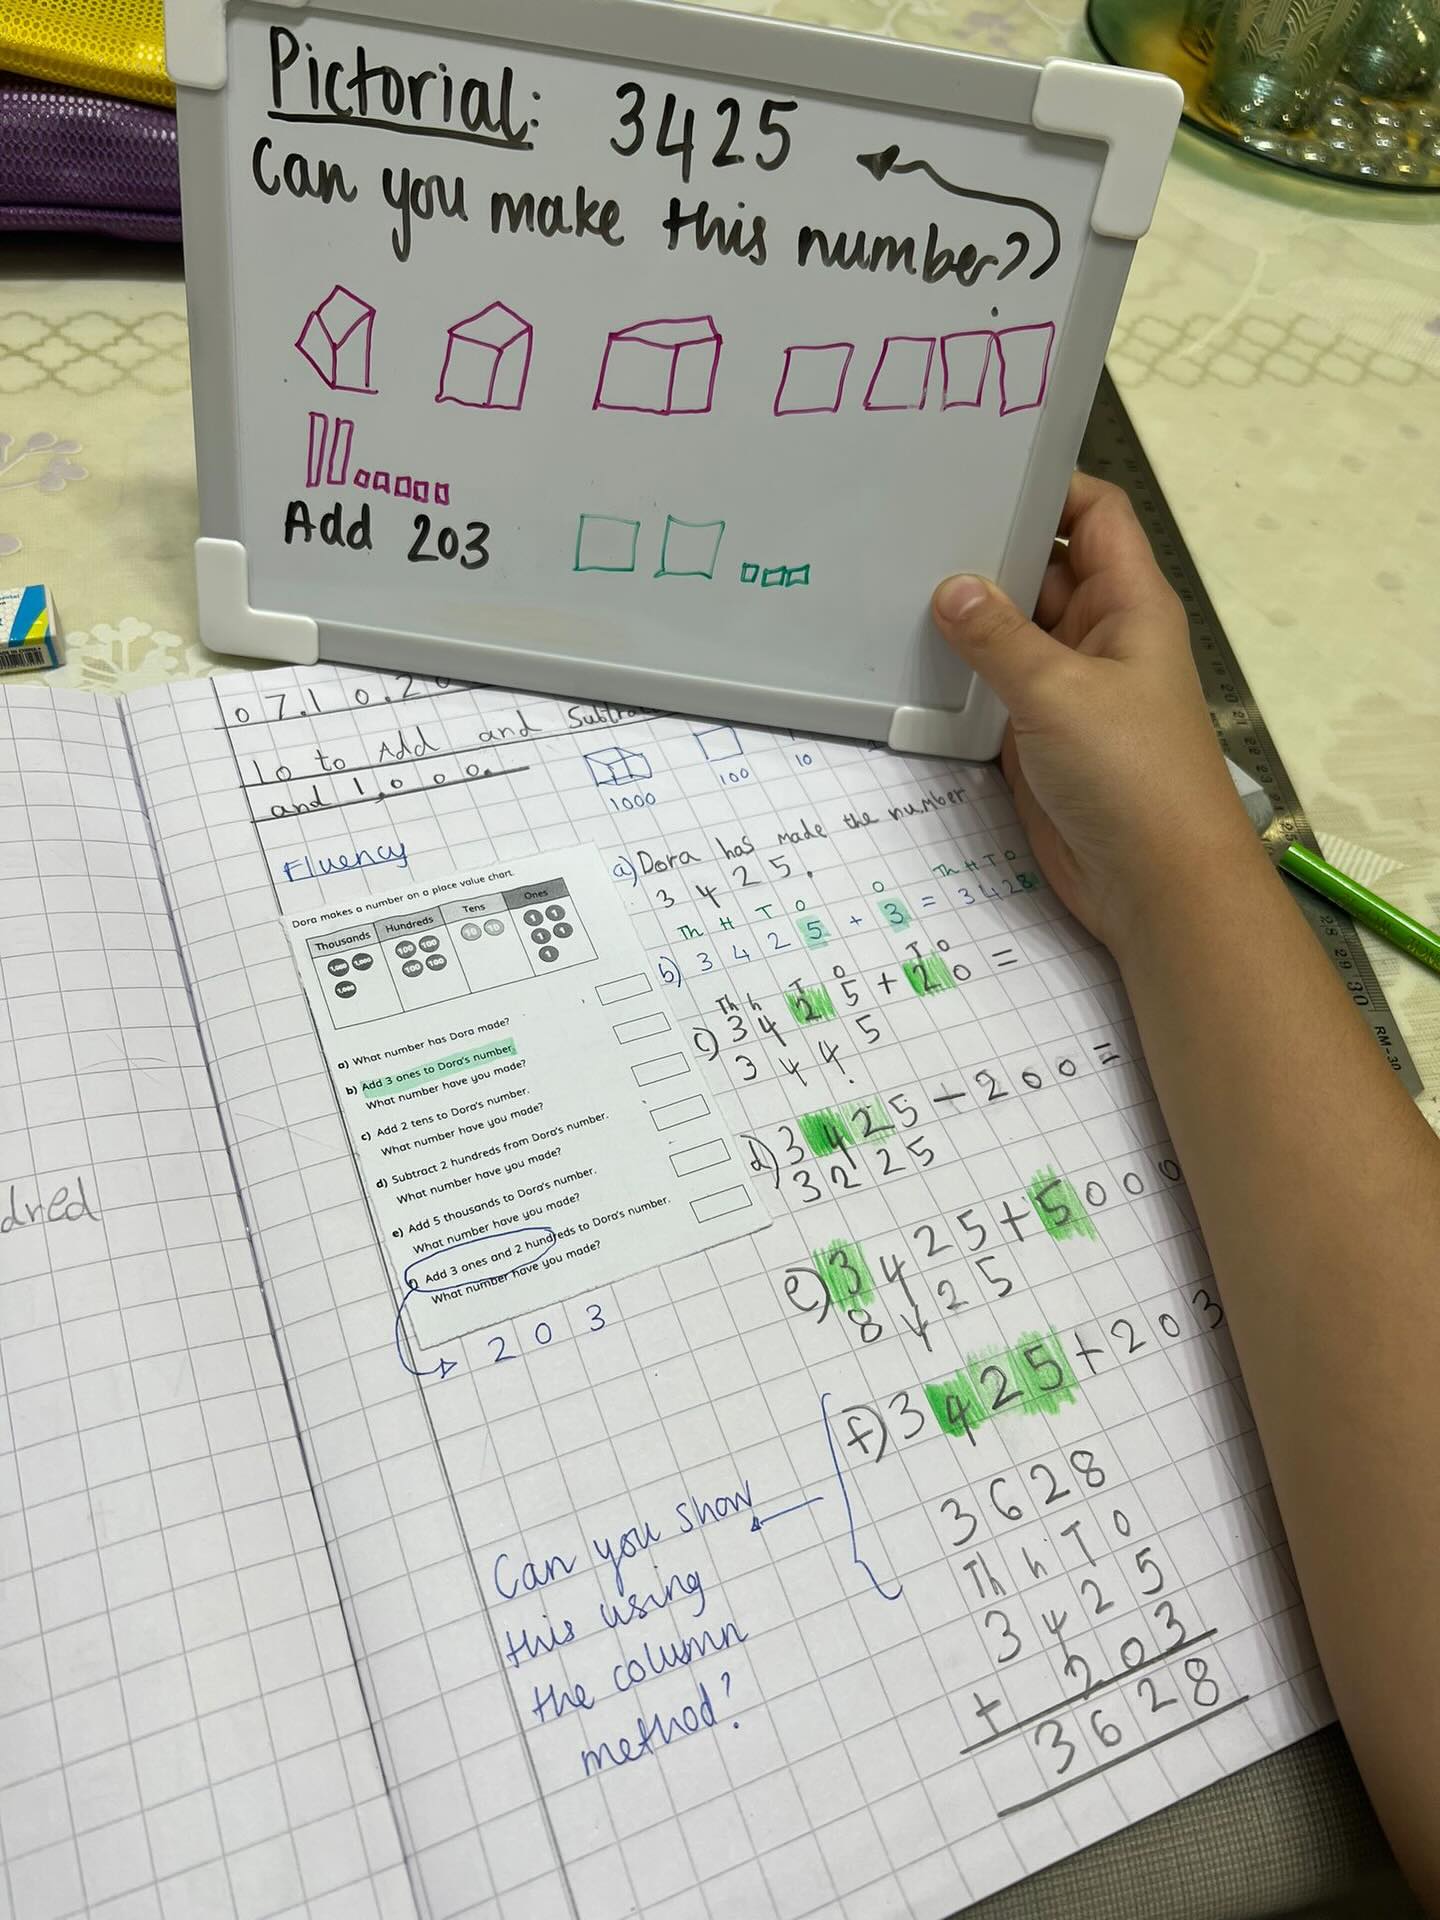 Pictorial: 3425
Can you make this number?
Add 203
07.10.20
10 to Add and Subtra
and 1,000.
1000
100
10
dred
Fluency
Dora makes a number on a place value chart.
Thousands Hundreds Tens Ones
1,000 1,000 100 100 10 10 1 1
1,000 100 100 1 1
1
a) What number has Dora made?
b) Add 3 ones to Dora's number.
What number have you made?
c) Add 2 tens to Dora's number.
What number have you made?
d) Subtract 2 hundreds from Dora's number.
What number have you made?
e) Add 5 thousands to Dora's number.
What number have you made?
Add 3 ones and 2 hundreds to Dora's number.
What number have you made?
203
a) Dora has made the number
3425.
Th H T O O Th H T O
b) 3425 + 3 = 3428
Th h T O T O
c) 3425 + 20 =
3445
d) 3425 - 200 =
3225
e) 3425 + 5000
8425
f) 3425 + 203
3628
Th h T O
3425
+ 203
3628
Can you show
this using
the column
method?
RM-30